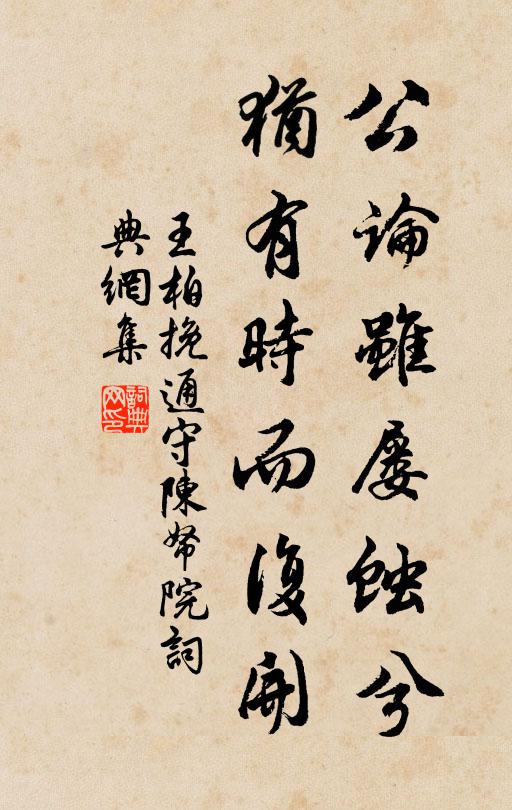 公論雖屡蝕兮
猶有時而復開
王柏挽通守陳帑院詞
典網集
詞典網印